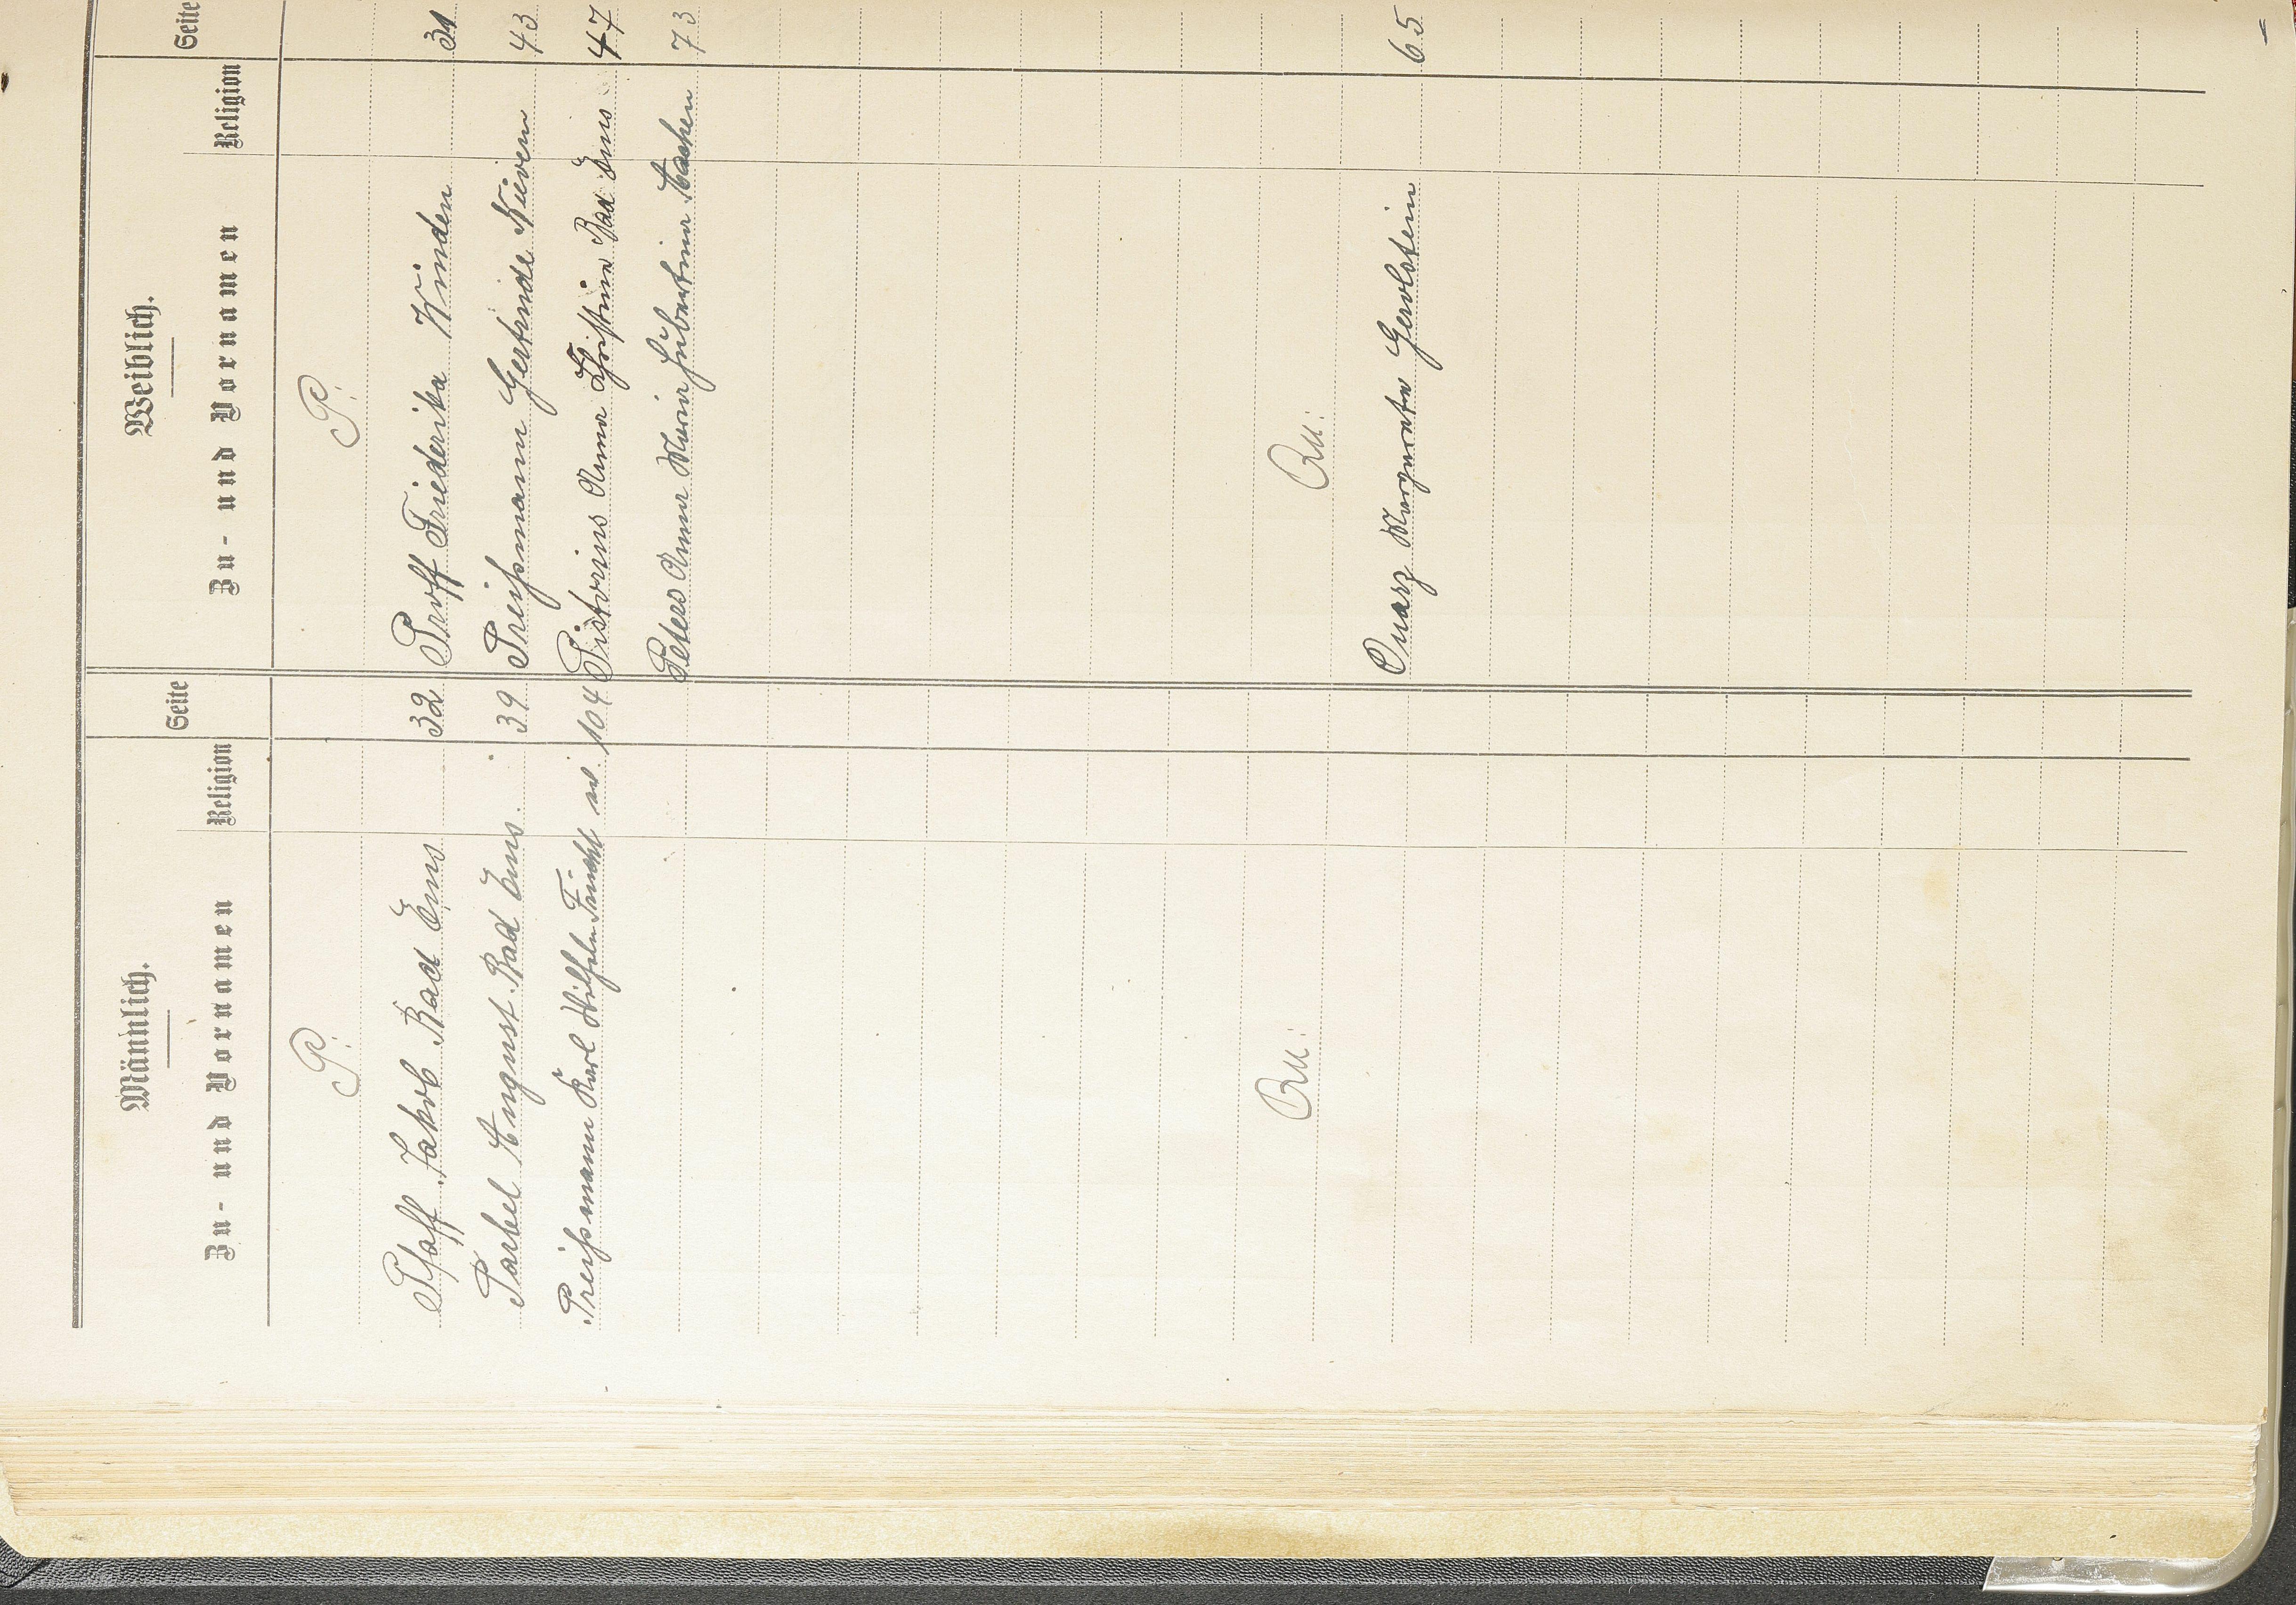 Männlich.
Zu- und Vornamen Religion Seite
P.
Pfaff Jakob Bad Ems 32
Parbel August Bad Ems. 39
Preißmann Karl Wilhelm Frücht 104
Qu.
Weiblich.
Zu- und Vornamen Religion Seite
P.
Proff Friederika Winden 31
Preißmann Gertrude Nievern 43
Pistorius Anna Christine Bad Ems 47
Peters Anna Maria Hubertine Aachen 73
Qu.
Quarz Margareta Gerolstein 65